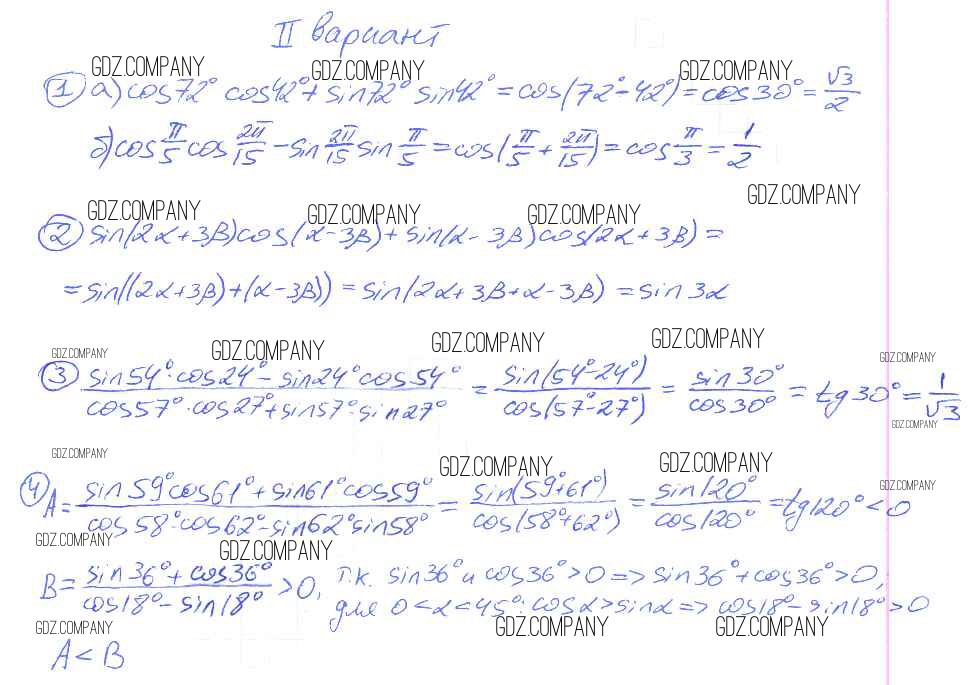 II вариант
GDZ.COMPANY GDZ.COMPANY GDZ.COMPANY
1 а) cos72° cos42° + sin72° sin42° = cos(72° - 42°) = cos30° = √3/2
б) cos π/5 cos 2π/15 - sin 2π/15 sin π/5 = cos(π/5 + 2π/15) = cos π/3 = 1/2
GDZ.COMPANY GDZ.COMPANY GDZ.COMPANY GDZ.COMPANY
2 sin(2α+3β)cos(α-3β)+sin(α-3β)cos(2α+3β) =
= sin((2α+3β)+(α-3β)) = sin(2α+3β+α-3β) = sin3α
GDZ.COMPANY GDZ.COMPANY GDZ.COMPANY GDZ.COMPANY GDZ.COMPANY
3 (sin54°·cos24° - sin24° cos54°)/(cos57°·cos27° + sin57°·sin27°) = sin(54°-24°)/cos(57°-27°) = sin30°/cos30° = tg30° = 1/√3
GDZ.COMPANY
GDZ.COMPANY GDZ.COMPANY GDZ.COMPANY GDZ.COMPANY
4 A = (sin59°cos61° + sin61°cos59°)/(cos58°·cos62° - sin62°sin58°) = sin(59°+61°)/cos(58°+62°) = sin120°/cos120° = tg120° < 0
GDZ.COMPANY GDZ.COMPANY
B = (sin36° + cos36°)/(cos18° - sin18°) > 0, т.к. sin36° и cos36° > 0 => sin36° + cos36° > 0,
для 0 < α < 45°: cosα > sinα => cos18° - sin18° > 0
GDZ.COMPANY GDZ.COMPANY GDZ.COMPANY
A < B